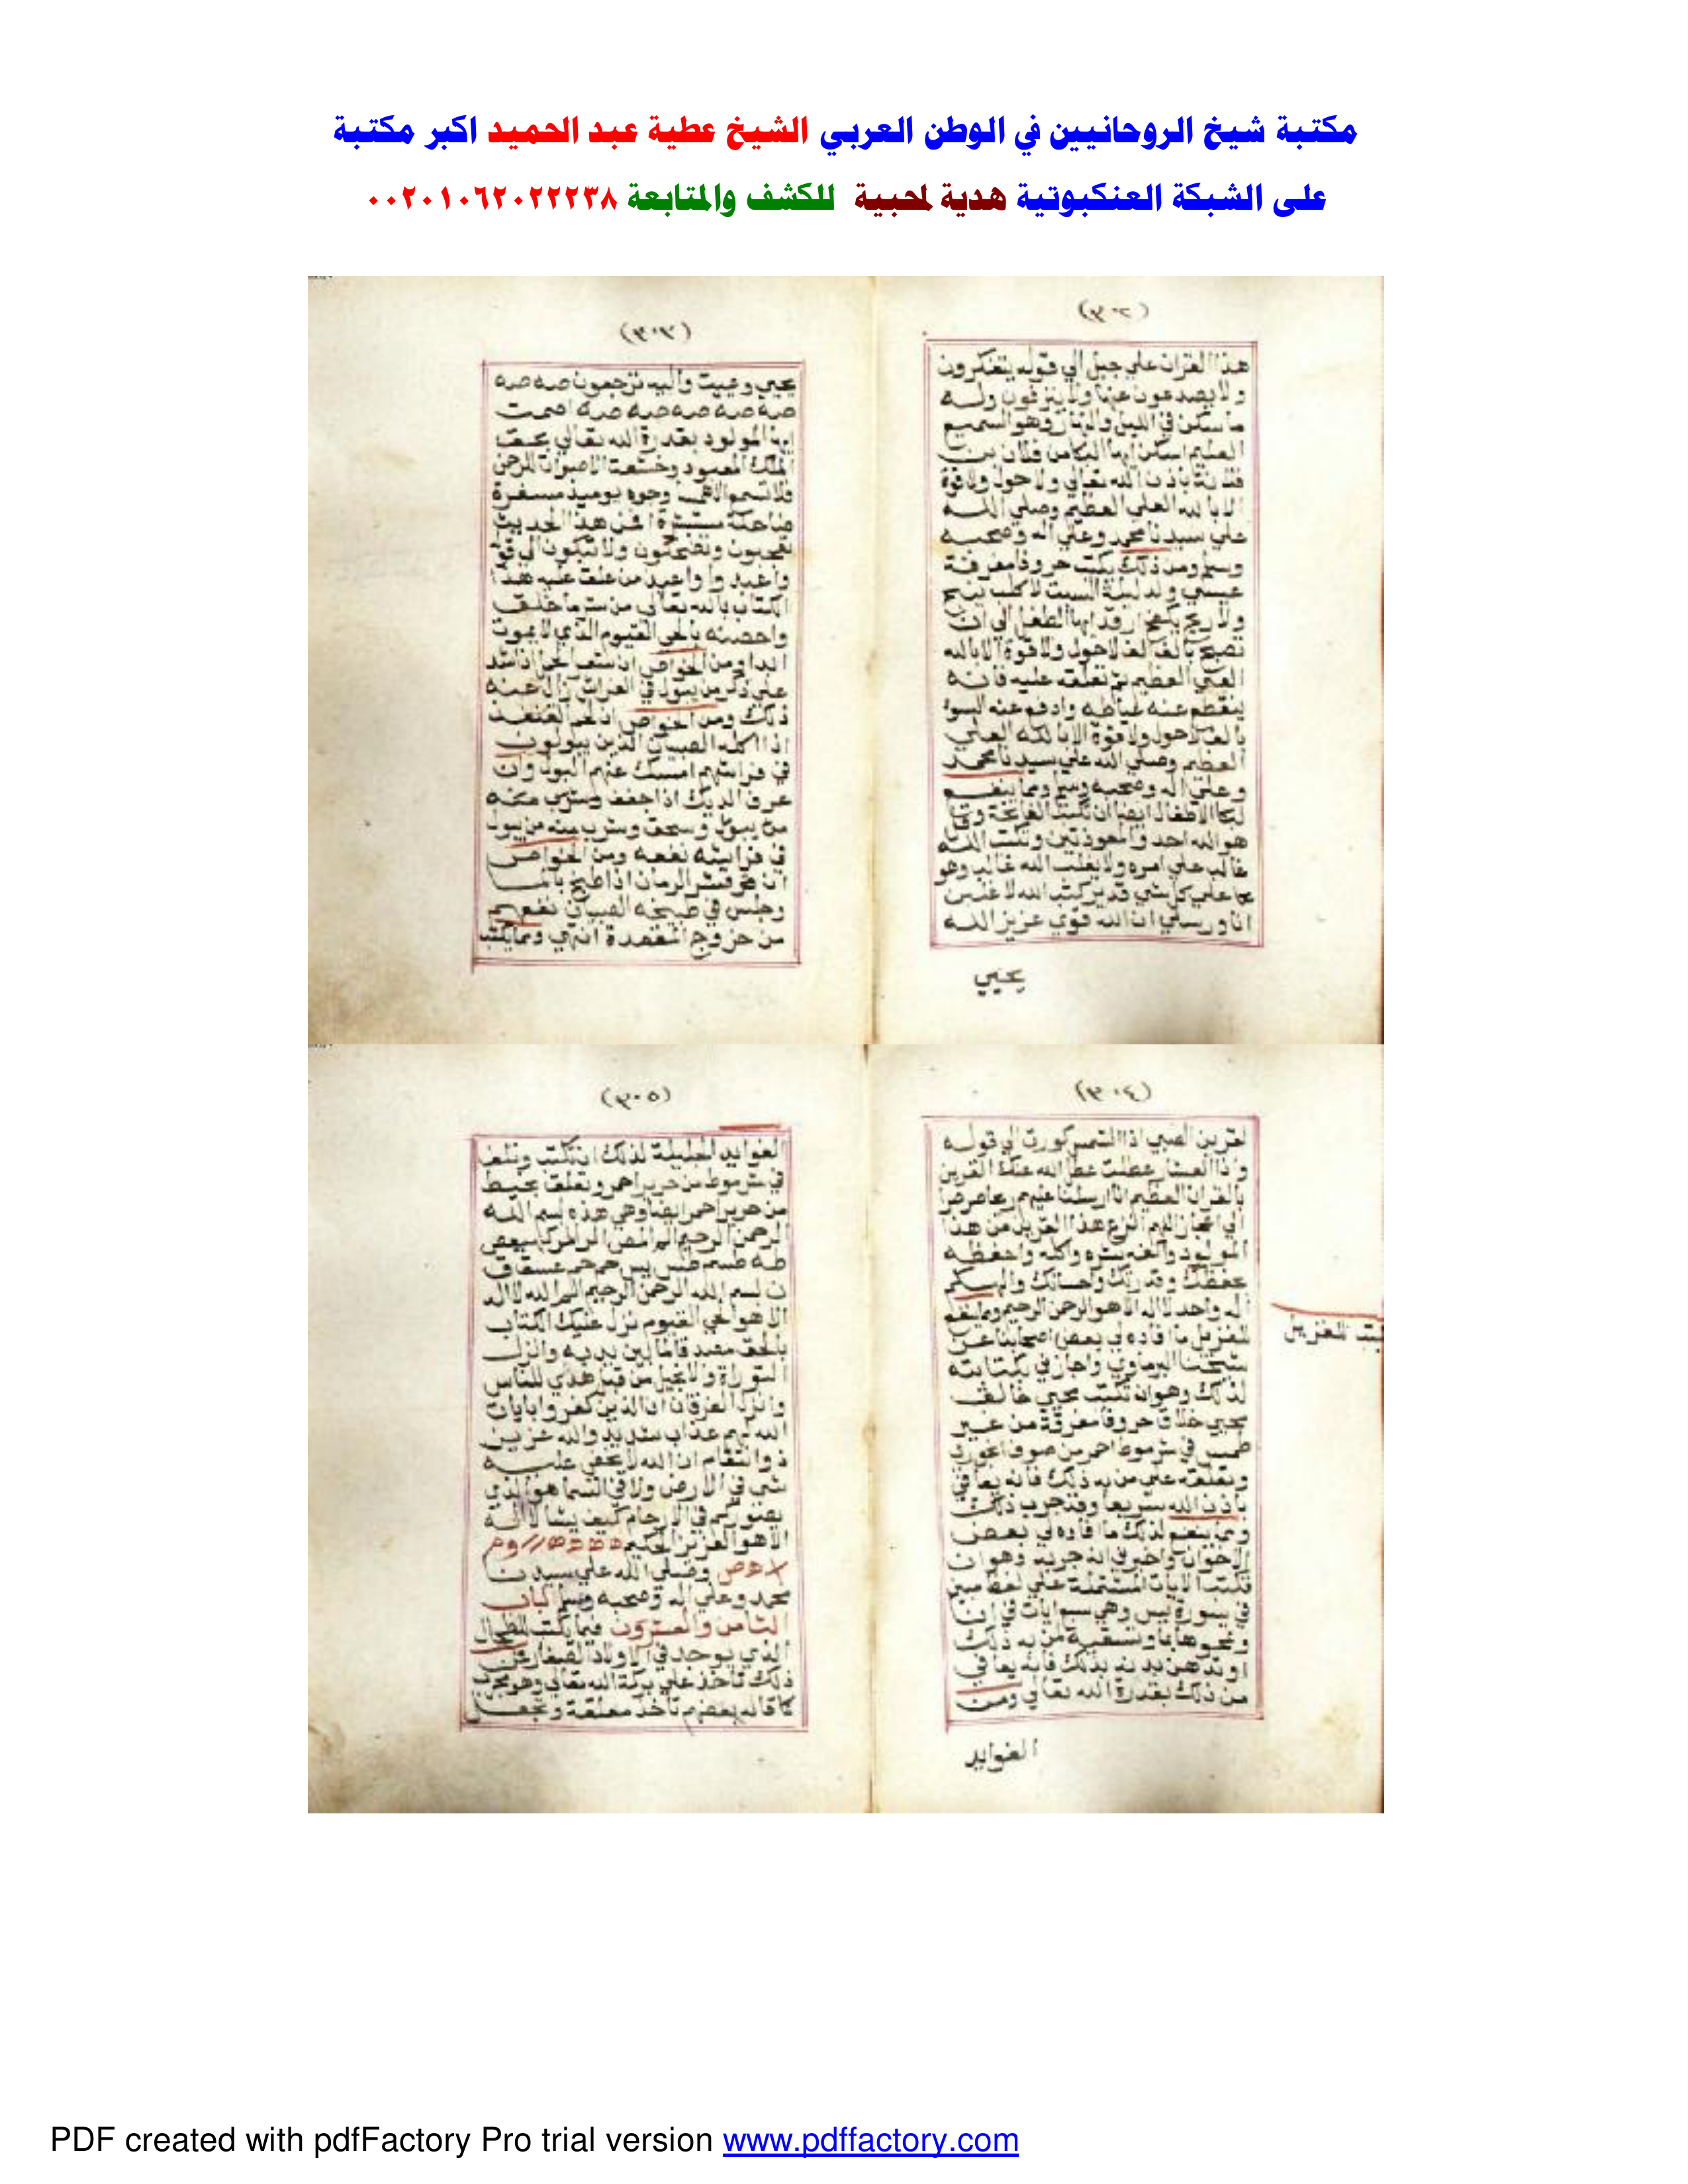 مكتبة شيخ الروحانيين في الوطن العربي الشيخ عطية عبد الحميد اكبر مكتبة
على الشبكة العنكبوتية هدية لمحبية للكشف والمتابعة ٠٠٢٠١٠٦٢٠٢٢٢٣٨
(٣٠٢)
هذا القران علي جبل الي قوله يتفكرون
ولا يصدعون عنها ولا ينزفون وله
ما سكن في الليل والنهار وهو السميع
العليم اسكن ايها الباكي فلان بن
فلانة باذن الله تعالي ولا حول ولا قوة
الا بالله العلي العظيم وصلي الله
علي سيدنا محمد وعلي اله وصحبه
وسلم ومن ذلك يكتب حروفا مفرقة
عيسي ولد ليلة السبت لا كلب ينبح
ولا ريح ارقد ايها الطفل الي ان
تصبح بالف الف لا حول ولا قوة الا بالله
العلي العظيم ثم تعلقه عليه فانه
ينقطع عنه عياطه وادفع عنه السوء
بالف لا حول ولا قوة الا بالله العلي
العظيم وصلي الله علي سيدنا محمد
وعلي اله وصحبه وسلم ومما ينفع
لبكا الاطفال ايضا ان تكتب الفاتحة وقل
هو الله احد والمعوذتين وتكتب الله
غالب علي امره ولا يغلب الله غالب وهو
علي كل شي قدير كتب الله لاغلبن
انا ورسلي ان الله قوي عزيز الله
يحيي
(٣٠٣)
يحيي ويميت واليه ترجعون صه صه
صه صه صه صه صه اصمت
ايها المولود بقدرة الله تعالي بحق
الملك المعبود وخشعت الاصوات للرحمن
فلا تسمع الا همسا وجوه يوميذ مسفرة
ضاحكة مستبشرة افمن هذا الحديث
تعجبون وتضحكون ولا تبكون الي قوله
واعبدوا واعيذ من علق عليه هذا
الكتاب بالله تعالي من شر ما خلق
واحصنه بالحي القيوم الذي لا يموت
ابدا ومن الخواص ان
علي ذكر من يبول في الفراش زال عنه
ذلك ومن الخواص ان لحم القنفذ
اذا اكله الصبيان الذين يبولون
في فراشهم امسك عنهم البول وان
عرف الديك اذا جفف وشرب منه
من يبول وسحق وشرب منه من يبول
في فراشه نفعه ومن الخواص
ان قشر الرمان اذا طبخ بالما
وجلس في طبيخه الصبيان نفعهم
من خروج المقعدة انتهي ومما يكتب
(٣٠٤)
لقرين الصبي اذا الشمس كورت الي قوله
واذا العشار عطلت عطل الله عنك القرين
بالقران العظيم انا ارسلنا عليهم ريحا صرصرا
الي اللهم انزع هذا القرين من هذا
المولود واكفه شره واكله واحفظه
بحفظك وقدرتك واحسانك والهكم
اله واحد لا اله الا هو الرحمن الرحيم ومما ينفع
للغزيل ما افاده لي بعض اصحابنا عن
شيخنا البرماوي واجاز في بكتابته
لذلك وهو ان تكتب محيي خالق
محيي خلاق حروفا مفرقة من غير
طمس في شرموط احمر من صوف
وتعلقه علي من به ذلك فانه يعافي
باذن الله سريعا وقد جرب ذلك
ومما ينفع لذلك ما افاده لي بعض
الاخوان واخبرني انه جربه وهو ان
تكتب الايات المشتملة علي لفظ مبين
في سورة يس وهي سبع ايات في انا
وتمحوها بما وتسقيه من به ذلك
او تدهن بدنه بذلك فانه يعافي
من ذلك بقدرة الله تعالي ومن
الفوايد
للغزيل
(٣٠٥)
الفوايد الجليلة لذلك ان تكتب وتلف
في شرموط من حرير احمر وتعلق بخيط
من حرير احمر ايضا وهي هذه بسم الله
الرحمن الرحيم الم المص الر المر كهيعص
طه طسم طس يس حم حم عسق ق
ن بسم الله الرحمن الرحيم الم الله لا اله
الا هو الحي القيوم نزل عليك الكتاب
بالحق مصدقا لما بين يديه وانزل
التوراة والانجيل من قبل هدي للناس
وانزل الفرقان ان الذين كفروا بايات
الله لهم عذاب شديد والله عزيز
ذو انتقام ان الله لا يخفي عليه
شي في الارض ولا في السما هو الذي
يصوركم في الارحام كيف يشا لا اله
الا هو العزيز الحكيم
وصلي الله علي سيدنا
محمد وعلي اله وصحبه وسلم الباب
الثامن والعشرون فيما يكتب للطحال
الذي يوجد في الاولاد الصغار
ذلك تاخذ علي بركة الله تعالي وهو مجرب
كما قاله بعضهم تاخذ معلقة وتجعل
PDF created with pdfFactory Pro trial version www.pdffactory.com